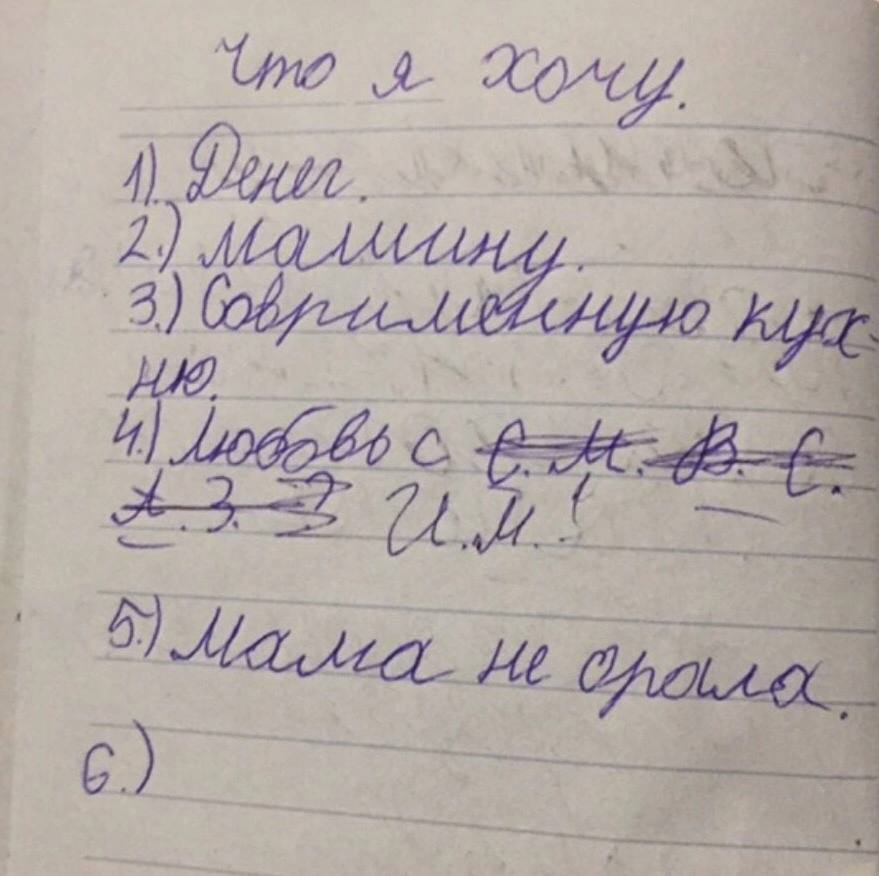 Что я хочу.
1). Денег.
2.) Машину.
3.) Совримённую кух-
ню.
4.) Любовь с С. М. В. С.
А. З. И.М.!
5.) Мама не орала.
6.)